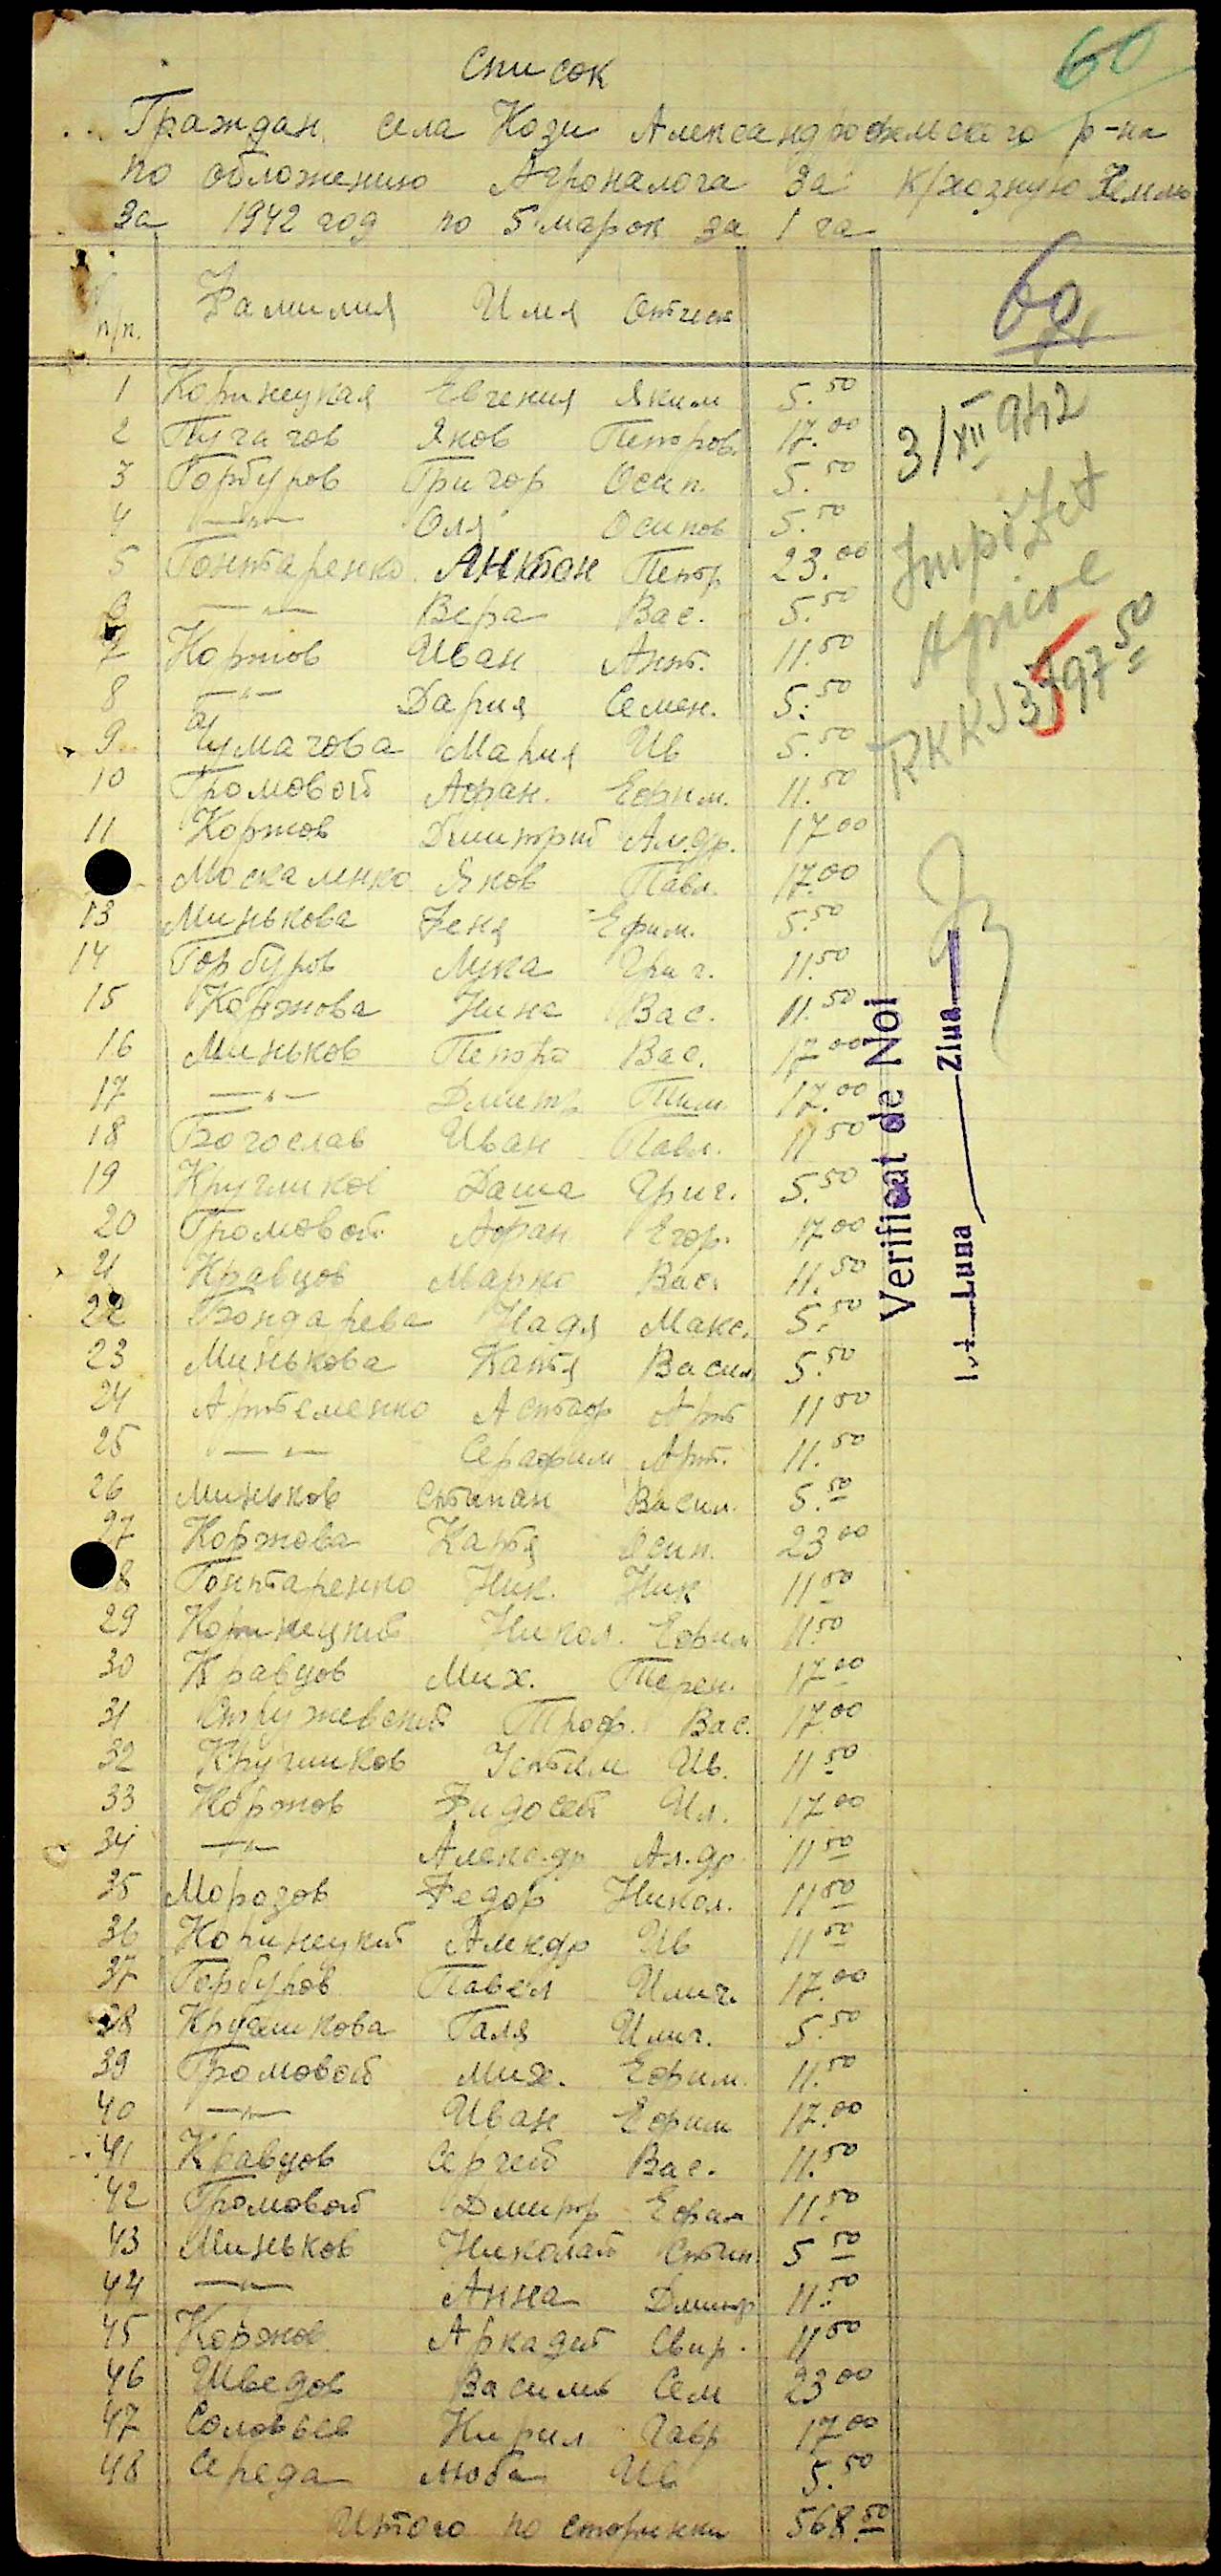 60
Список
Граждан села Кози Александрофемского р-на
по обложению Агроналога за к/хозную Землю
За 1942 год по 5 марок за 1 га
п/п. Фамилия Имя Отчес
60
1 Коринецкая Евгения Яким 5.50
2 Пугачов Яков Петров. 17.00
3 Горбуров Григор Осип. 5.50
4 —"— Оля Осипов 5.50
5 Гонтаренко Антон Петр 23.00
6 —"— Вера Вас. 5.50
7 Коржов Иван Ант. 11.50
8 —"— Дария Семен. 5.50
9 Чумачова Мария Ив 5.50
10 Громовой Афан. Ефим. 11.50
11 Коржов Дмитрий Ал.др. 17.00
Москаленко Яков Павл. 17.00
13 Минькова Феня Ефим. 5.50
14 Горбуров Лука Григ. 11.50
15 Коржова Нина Вас. 11.50
16 Миньков Петро Вас. 17.00
17 —"— Дмитр Тим. 17.00
18 Богослав Иван Павл. 11.50
19 Кругликов Даша Григ. 5.50
20 Громовой Афан Егор. 17.00
21 Кравцов Марко Вас. 11.50
22 Бондарева Надя Макс. 5.50
23 Минькова Катя Васил 5.50
24 Артеменко Астаф Арт 11.50
25 —"— Серафим Арт. 11.50
26 Миньков Стипан Васил. 5.50
27 Коржова Катя Осип. 23.00
28 Гонтаренко Ник. Ник 11.50
29 Коринецкий Никол. Ефим 11.50
30 Кравцов Мих. Терен. 17.00
31 Стружевский Троф. Вас. 17.00
32 Кругликов Устим Ив. 11.50
33 Коржов Фидосей Ил. 17.00
34 —"— Алекс.др Ал.др 11.50
35 Морозов Федор Никол. 11.50
36 Коринецкий Алекдр Ив 11.50
37 Горбуров Павел Илич. 17.00
38 Кругликова Галя Илич. 5.50
39 Громовой Мих. Ефим. 11.50
40 —"— Иван Ефим 17.00
41 Кравцов Сергей Вас. 11.50
42 Громовой Дмитр Ефим 11.50
43 Миньков Николай Стип. 5.50
44 —"— Анна Дмитр 11.50
45 Коржов Аркадий Свир. 11.50
46 Шведов Василь Сем 23.00
47 Соловьев Кирил Гавр 17.00
48 Середа Люба Ив 5.50
Итого по сторинки 568.50
3/XII 942
Impozit
Agricol
RKKS 3597 50
Verificat de Noi
Luna Ziua